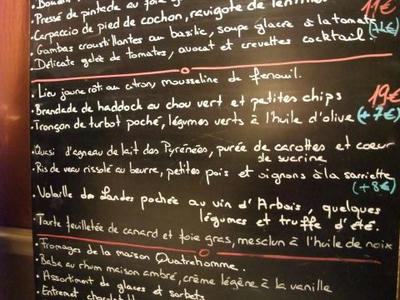 • Pressé de pintade au foie
• Carpaccio de pied de cochon, ravigote de
• Gambas croustillantes au basilic, soupe glacée à la tomate
• Délicate gelée de tomates, avocat et crevettes cocktail.
11€
• Lieu jaune rôti au citron, mousseline de fenouil.
• Brandade de haddock au chou vert et petites chips
19€
• Tronçon de turbot poché, légumes verts à l'huile d'olive
(+7€)
• Quasi d'agneau de lait des Pyrénées, purée de carottes et coeur
de sucrine
• Ris de veau rissolé au beurre, petits pois et oignons à la sarriette
(+8€)
• Volaille des Landes pochée au vin d'Arbois, quelques
légumes et truffe d'été.
• Tarte feuilletée de canard et foie gras, mesclun à l'huile de noix
• Fromages de la maison Quatrehomme.
• Baba au rhum maison ambré, crème légère à la vanille
• Assortiment de glaces et sorbets
• Entremet